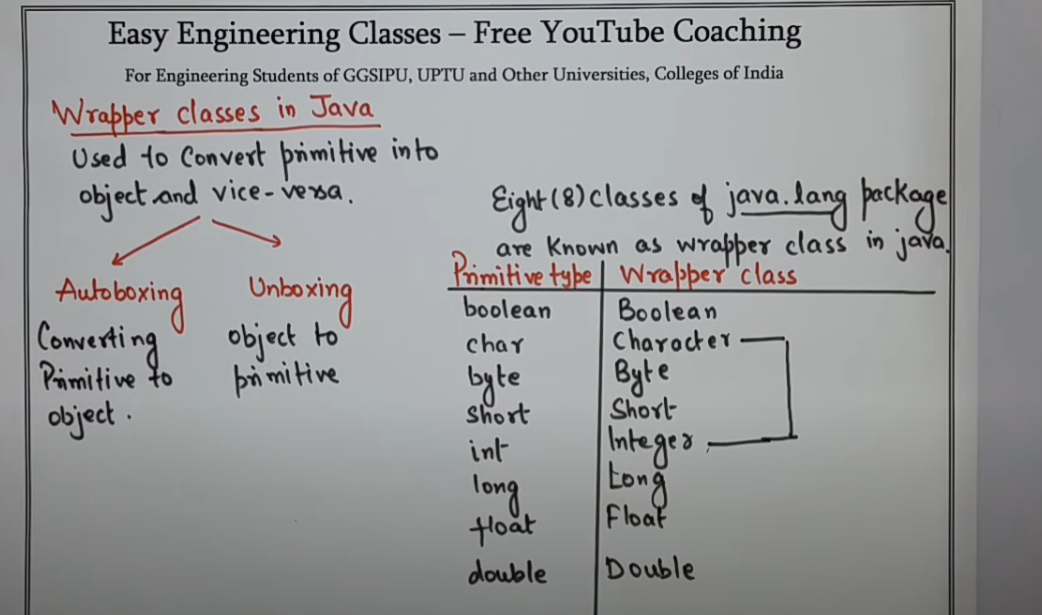 Easy Engineering Classes – Free YouTube Coaching
For Engineering Students of GGSIPU, UPTU and Other Universities, Colleges of India
Wrapper classes in Java
Used to Convert primitive into
object and vice-versa.
Autoboxing
Converting
Primitive to
object.
Unboxing
object to
primitive
Eight (8) classes of java.lang package
are known as wrapper class in java.
Primitive type Wrapper class
boolean Boolean
char Character
byte Byte
short Short
int Integer
long Long
float Float
double Double